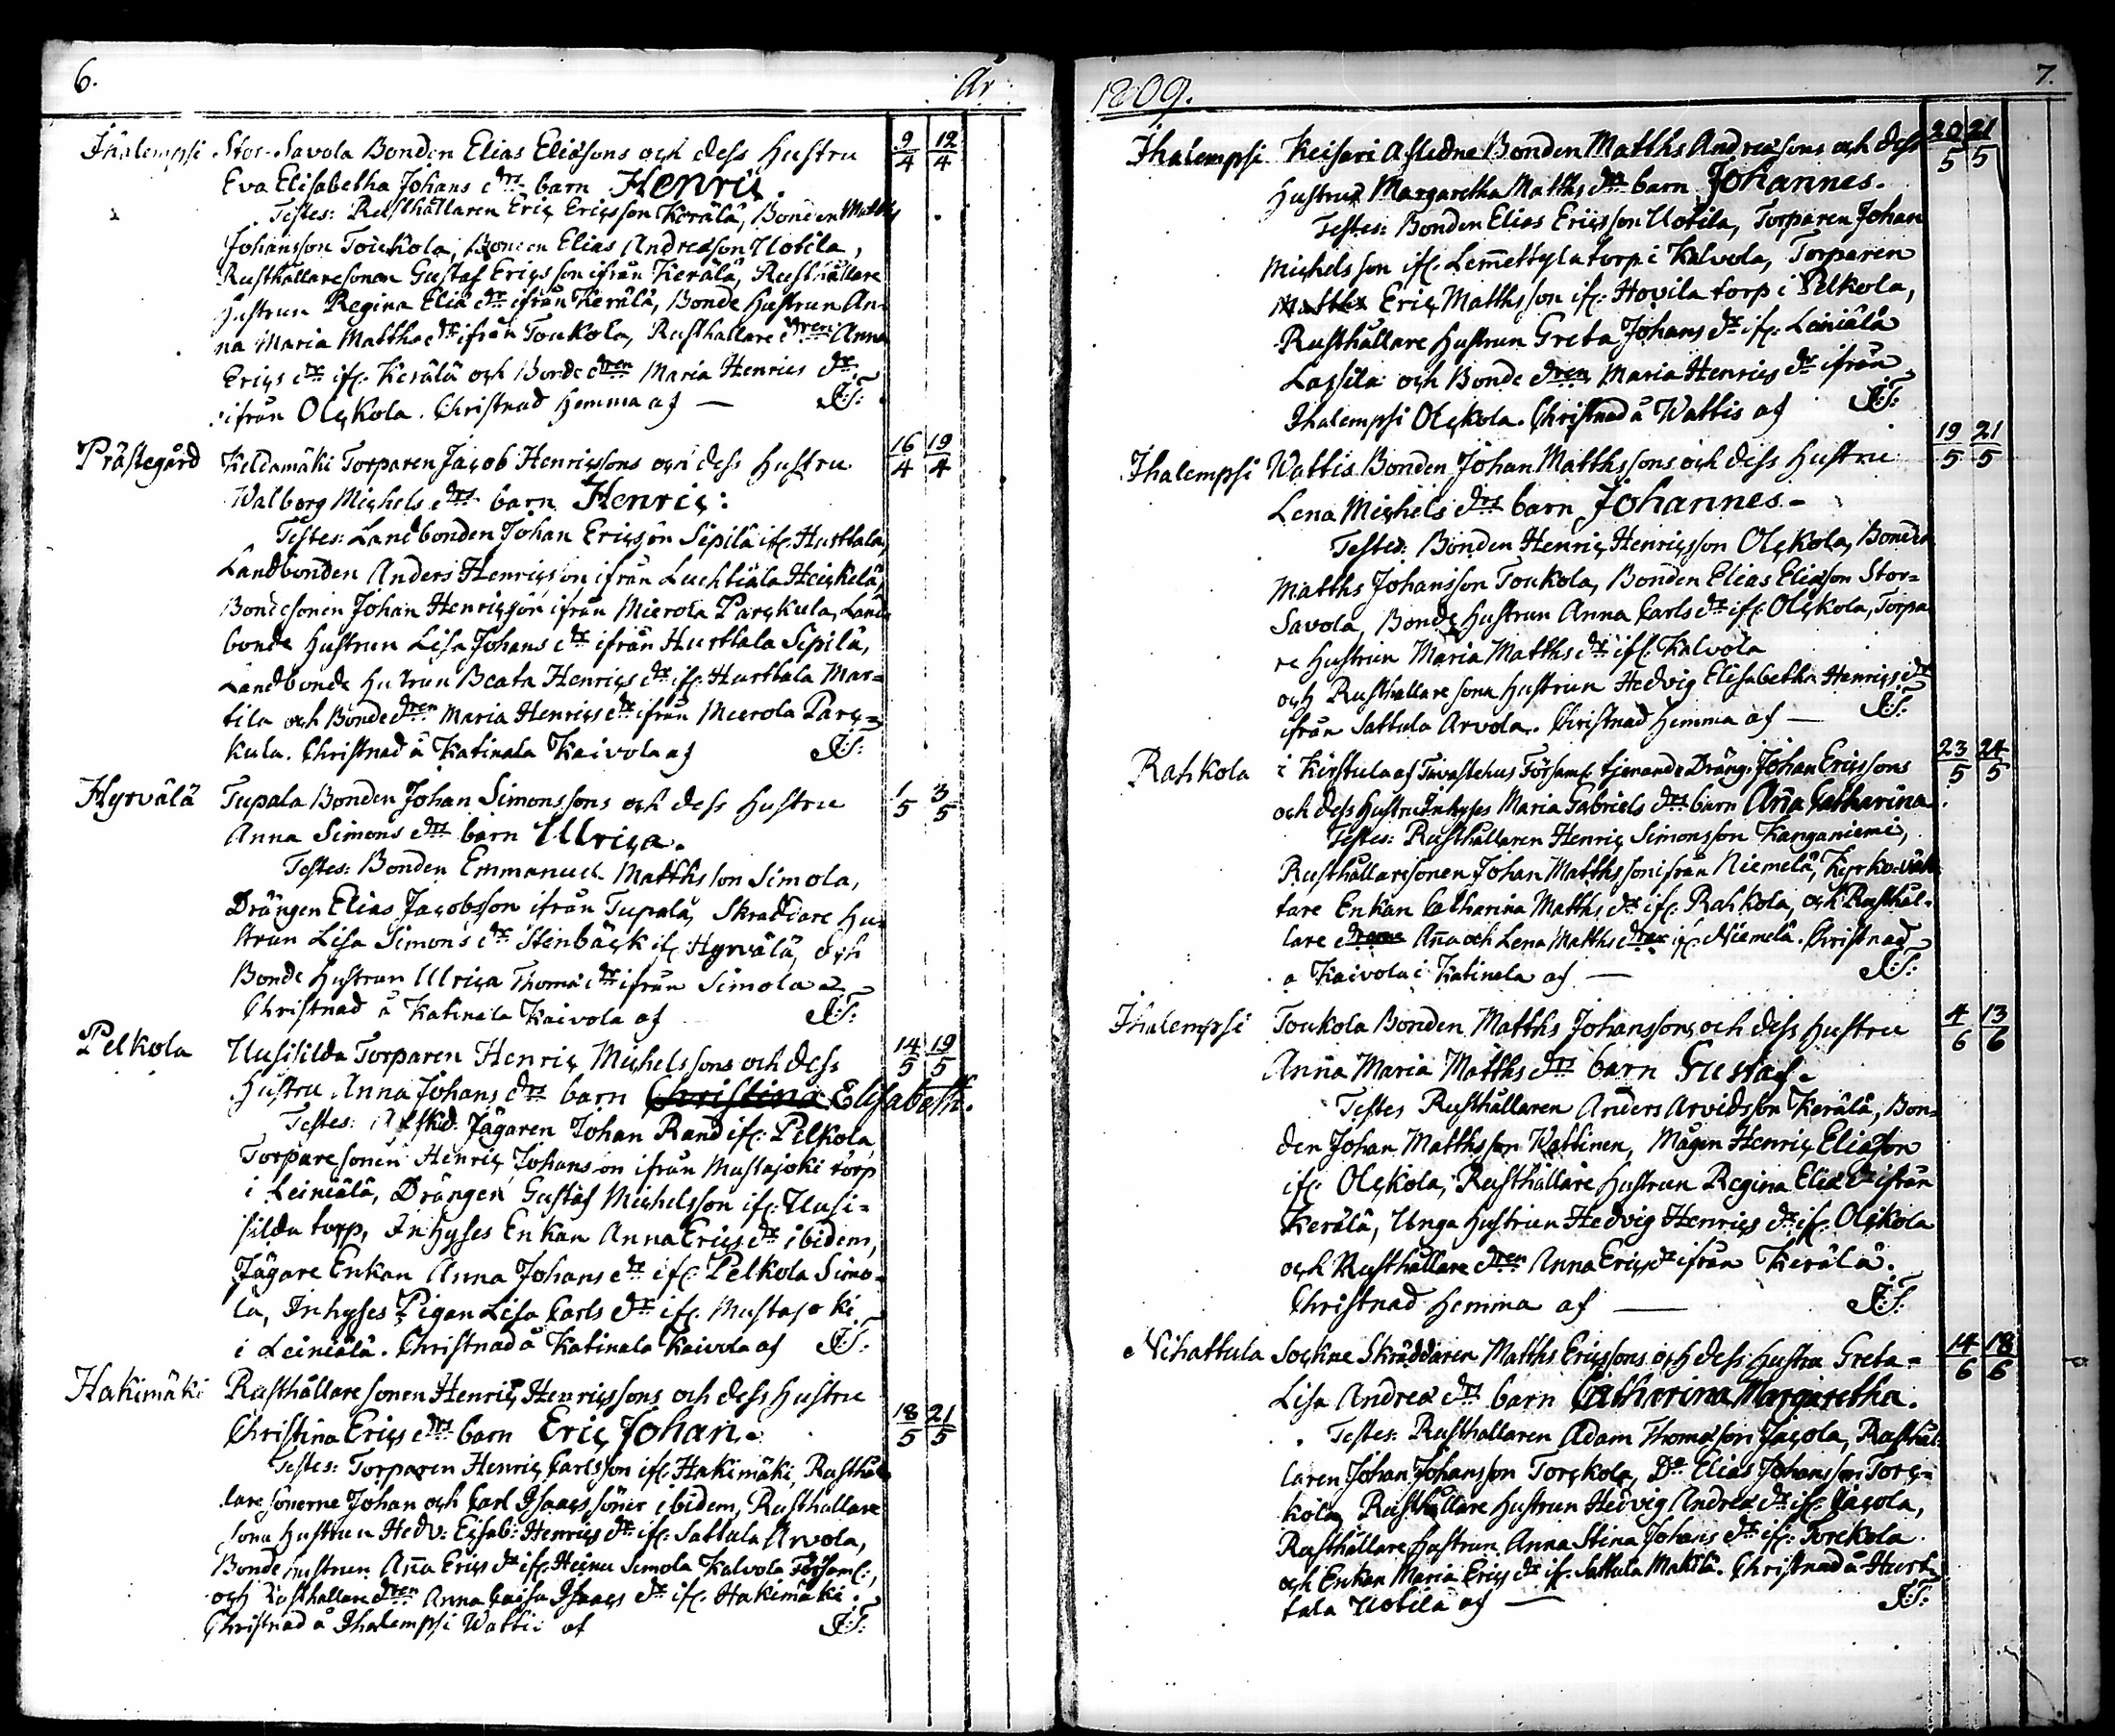 6. År
Ihalempsi Stor-Savola Bonden Elias Eliäsons och dess Hustru 9/4 12/4
Eva Elisabetha Johans drs barn Henric.
Testes: Rusthållaren Eric Ericsson Kerälä, Bonden Matths
Johansson Toukola, Bonden Elias Andreäson Uotila,
Rusthållaresonen Gustaf Ericsson ifrån Kerälä, Rusthållare
Hustrun Regina Eliä dr ifrån Kerälä, Bonde Hustrun An-
na Maria Matths dr ifrån Toukola, Rusthållare dren Anna
Erics dr ifr. Kerälä och Bonde dren Maria Henrics dr
ifrån Olckola. Christnad hemma af — J:S:
Prästegård Keldamäki Torparen Jacob Henricssons och dess Hustru 16/4 19/4
Walborg Michels drs barn Henric:
Testes: Landbonden Johan Ericsson Sipilä ifr. Hurttala,
Landbonden Anders Henricsson ifrån Luchtiala Heickelä,
Bondesonen Johan Henricsson ifrån Mierola Parckula, Land
bonde Hustrun Lisa Johans dr ifrån Hurttala Sipilä,
Landbonde Hustrun Beata Henrics dr ifr. Hurttala Mar-
tila och Bonde dren Maria Henrics dr ifrån Mierola Parc-
kula. Christnad å Katinala Kaivola af J:S:
Hyrvälä Tupala Bonden Johan Simonssons och dess Hustru 1/5 3/5
Anna Simons drs barn Ulrica.
Testes: Bonden Emmanuel Matthsson Simola,
Drängen Elias Jacobsson ifrån Tupala, Skräddare Hu-
strun Lisa Simons dr Stenbäck ifr. Hyrvälä, och
Bonde Hustrun Ulrica Thomä dr ifrån Simola.
Christnad å Katinala Kaivola af J:S:
Pelkola Uusisilda Torparen Henric Michelssons och dess 14/5 19/5
Hustru Anna Johans drs barn Christina Elisabeth.
Testes: Afsked. Jägaren Johan Rand ifr. Pelkola,
Torparesonen Henric Johansson ifrån Mustajoki torp
i Leiniälä, Drängen Gustaf Michelsson ifr. Uusi-
silda torp, Inhyses Enkan Anna Erics dr ibidem,
Jägare Enkan Anna Johans dr ifr. Pelkola Simo-
la, Inhyses Pigan Lisa Carls dr ifr. Mustajoki
i Leiniälä. Christnad å Katinala Kaivola af J:S:
Hakimäki Rusthållaresonen Henric Henricssons och dess Hustru
Christina Erics drs barn Eric Johan. 18/5 21/5
Testes: Torparen Henric Carlsson ifr. Hakimäki, Rusthål
lare sönerne Johan och Carl Isaacs söner ibidem, Rusthållare
sona Hustrun Hedv: Elisab: Henrics dr ifr. Sattula Arvola,
Bonde Hustrun Aña Erics dr ifr. Heinu Simola Kalvola Församl:,
och Rusthållare dren Anna Caisa Isaacs dr ifr. Hakimäki.
Christnad å Ihalempsi Wattis af J:S:
1809. 7.
Ihalempsi Keisari Afledne Bonden Matths Andreäsons och dess 20/5 21/5
Hustrus Margaretha Matths drs barn Johannes.
Testes: Bonden Elias Ericsson Uotila, Torparen Johan
Michelsson ifr. Lem̄ettylä torp i Kalvola, Torparen
Matths Eric Matthsson ifr. Hovila torp i Pelkola,
Rusthållare Hustrun Greta Johans dr ifr. Leiniälä
Lassila och Bonde dren Maria Henrics dr ifrån
Ihalempsi Olckola. Christnad å Wattis af J:S:
Ihalempsi Wattis Bonden Johan Matthssons och dess Hustru 19/5 21/5
Lena Michels drs barn Johannes.
Testes: Bonden Henric Henricsson Olckola, Bonden
Matths Johansson Toukola, Bonden Elias Eliäson Stor-
Savola, Bonde Hustrun Anna Carls dr ifr. Olckola, Torpa
re Hustrun Maria Matths dr ifr. Kalvola
och Rusthållare sona Hustrun Hedvig Elisabetha Henrics dr
ifrån Sattula Arvola. Christnad hemma af — J:S:
Rahkola i Kirstula af Tavastehus Församl. tjenande Dräng. Johan Ericssons 23/5 24/5
och dess Hustru Inhyses Maria Gabriels drs barn Aña Catharina.
Testes: Rusthållaren Henric Simonsson Kanganiemi,
Rusthållaresonen Johan Matthsson ifrån Niemelä, Kyrkovak
tare Enkan Catharina Matths dr ifr. Rahkola, och Rusthål-
lare Aña och Lena Matths drar ifr. Niemelä. Christnad
å Kaivola i Katinala af — J:S:
Ihalempsi Toukola Bonden Matths Johanssons och dess Hustru 4/6 13/6
Anna Maria Matths drs barn Gustaf.
Testes Rusthållaren Anders Arvidsson Kerälä, Bon-
den Johan Matthsson Wattinen, Mågen Henric Eliäson
ifr. Olckola, Rusthållare Hustrun Regina Eliä dr ifrån
Kerälä, Unga Hustrun Hedvig Henrics dr ifr. Olckola
och Rusthållare dren Anna Erics dr ifrån Kerälä.
Christnad hemma af — J:S:
Nihattula Sockne Skräddaren Matths Ericssons och dess Hustru Greta- 14/6 18/6
Lisa Andreä drs barn Catharina Margaretha.
Testes: Rusthållaren Adam Thomäson Jacola, Rusthål-
laren Johan Johansson Torckola, Do Elias Johansson Torc-
kola, Rusthållare Hustrun Hedvig Andreä dr ifr. Jacola,
Rusthållare Hustrun Anna Stina Johans dr ifr. Torckola
och Enkan Maria Erics dr ifr. Sattula Mattila. Christnad å Hurt-
tala Uotila af — J:S: